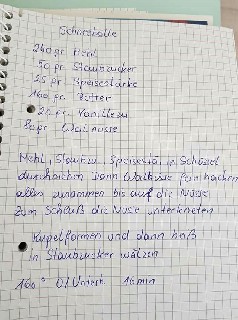 Schneebälle
240 gr. Mehl
50 gr. Staubzucker
25 gr. Speisestärke
160 gr. Butter
2 Vanillezu
80 gr Walnüsse
Mehl, Staubzu. Speisestär in Schüssel
durchsieben Dann Walnüsse feinhacken
alles zusammen bis auf die Nüsse
zum Schluß die Nüsse unterkneten
Kugel formen und dann heiß
in Staubzucker wälzen
160° O/Unterh. 16 min